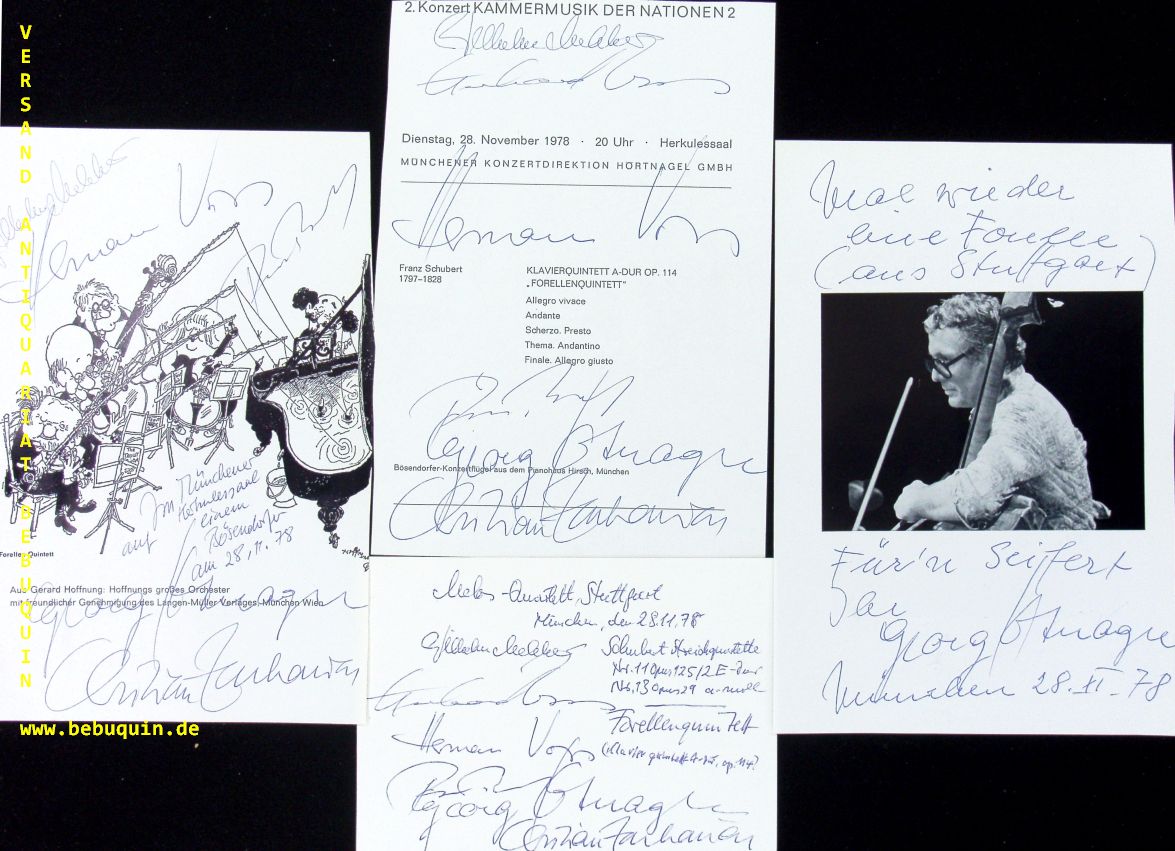 VERSAND ANTIQUARIAT BEBUQUIN
www.bebuquin.de
Herman Voss
Im Münchener
Herkulessaal
auf einem
Bösendorfer
am 28.11.78
Forellen Quintett
Aus Gerard Hoffnung: Hoffnungs großes Orchester
mit freundlicher Genehmigung des Langen-Müller Verlages, München Wien
Georg Hörtnagel
2. Konzert KAMMERMUSIK DER NATIONEN 2
Wilhelm Melcher
Gerhard Voss
Dienstag, 28. November 1978 · 20 Uhr · Herkulessaal
MÜNCHENER KONZERTDIREKTION HÖRTNAGEL GMBH
Herman Voss
Franz Schubert
1797–1828
KLAVIERQUINTETT A-DUR OP. 114
„FORELLENQUINTETT"
Allegro vivace
Andante
Scherzo. Presto
Thema. Andantino
Finale. Allegro giusto
Georg Hörtnagel
Bösendorfer-Konzertflügel aus dem Pianohaus Hirsch, München
Melos-Quartett, Stuttgart
München, den 28.11.78
Wilhelm Melcher
Schubert Streichquartette
Nr. 11 Opus 125/2 E-Dur
Nr. 13 Opus 29 a-moll
Gerhard Voss
Forellenquintett
Herman Voss
(Klavierquintett A-Dur, op. 114)
Georg Hörtnagel
Mal wieder
eine Forelle
(aus Stuttgart)
Für'n Seifert
Ihr
Georg Hörtnagel
München 28.XI.78